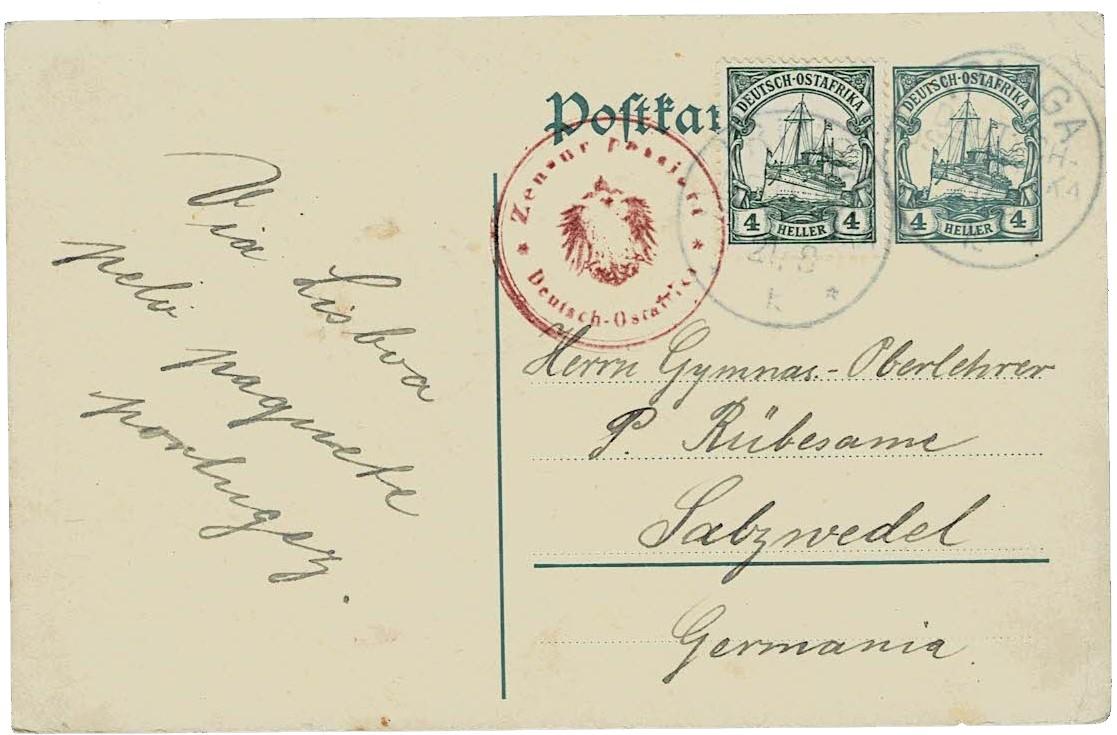 Postkar
DEUTSCH-OSTAFRIKA
4 HELLER 4
DEUTSCH-OSTAFRIKA
4 HELLER 4
Zensur passiert
* Deutsch-Ostafrika *
Via Lisboa
pelo paquete
portugez.
Herrn Gymnas.-Oberlehrer
P. Rübesame
Salzwedel
Germania.